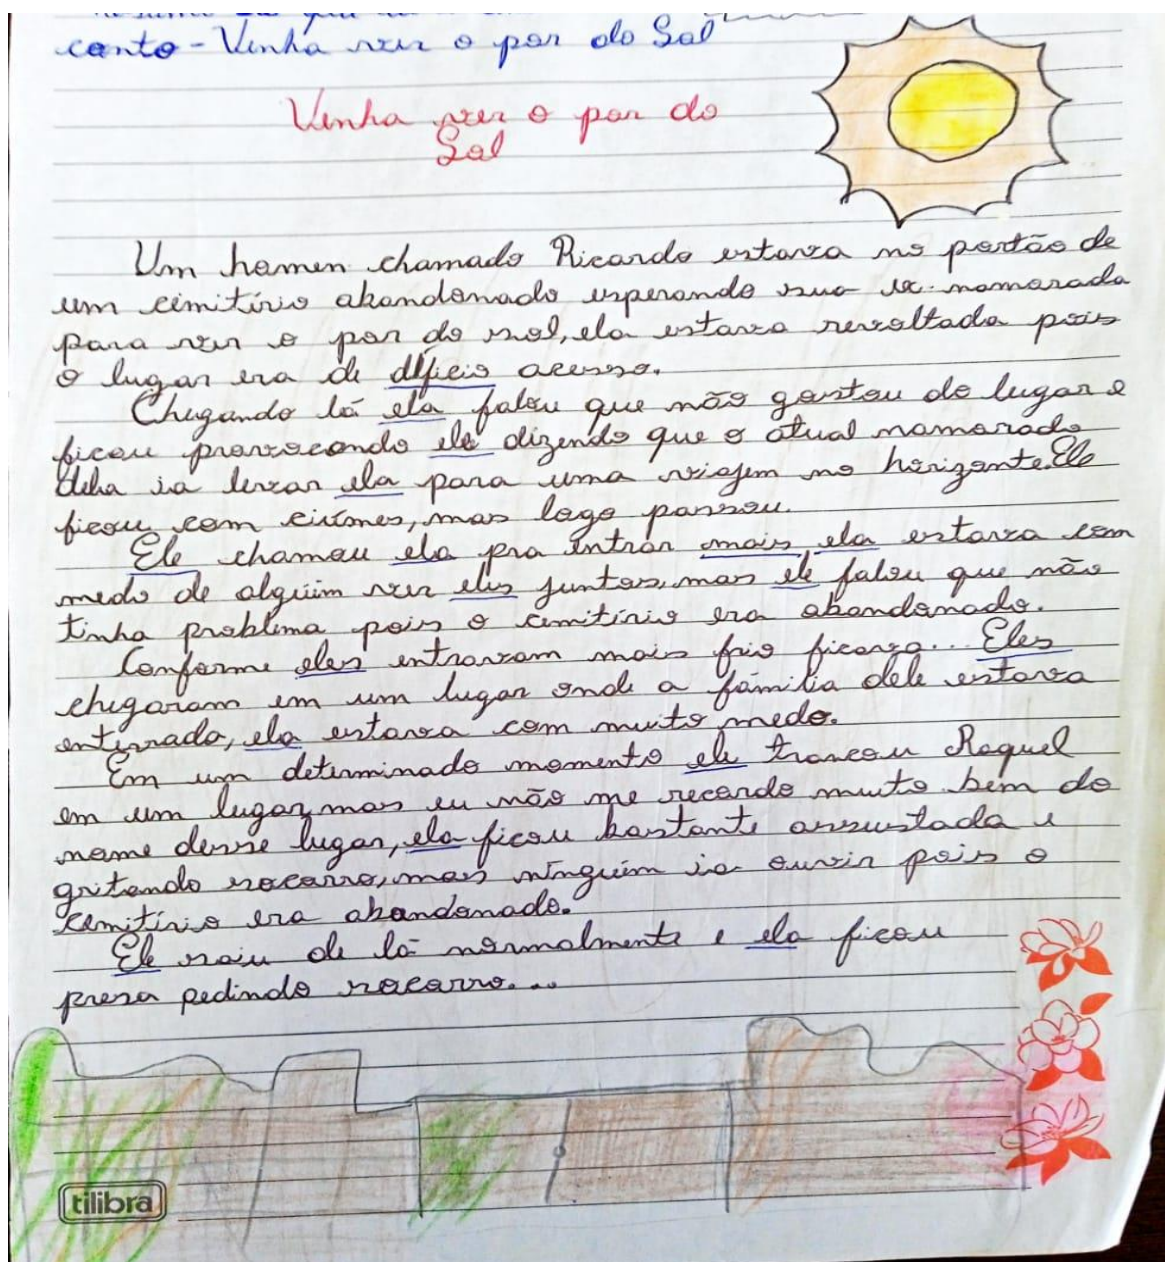 canto - Venha ver o por do Sol
Venha ver o por do
Sol
Um homen chamado Ricardo estava no portão de
um cimitério abandonado esperando sua ex-namorada
para ver o por do sol, ela estava revoltada pois
o lugar era de difício acesso.
Chegando lá ela falou que não gostou do lugar e
ficou provocando ele dizendo que o atual namorado
dela ia levar ela para uma viajem no horizonte. Ele
ficou com ciúmes, mas logo passou.
Ele chamou ela pra entrar mais ela estava com
medo de alguém ver eles juntos, mas ele falou que não
tinha problema pois o cemitério era abandonado.
Conforme eles entravam mais frio ficava... Eles
chegaram em um lugar onde a família dele estava
enterrada, ela estava com muito medo.
Em um determinado momento ele trancou Raquel
em um lugar, mas eu não me recordo muito bem do
nome desse lugar, ela ficou bastante assustada e
gritando socorro, mas ninguém ia ouvir pois o
cemitério era abandonado.
Ele saiu de lá normalmente e ela ficou
presa pedindo socorro...
tilibra